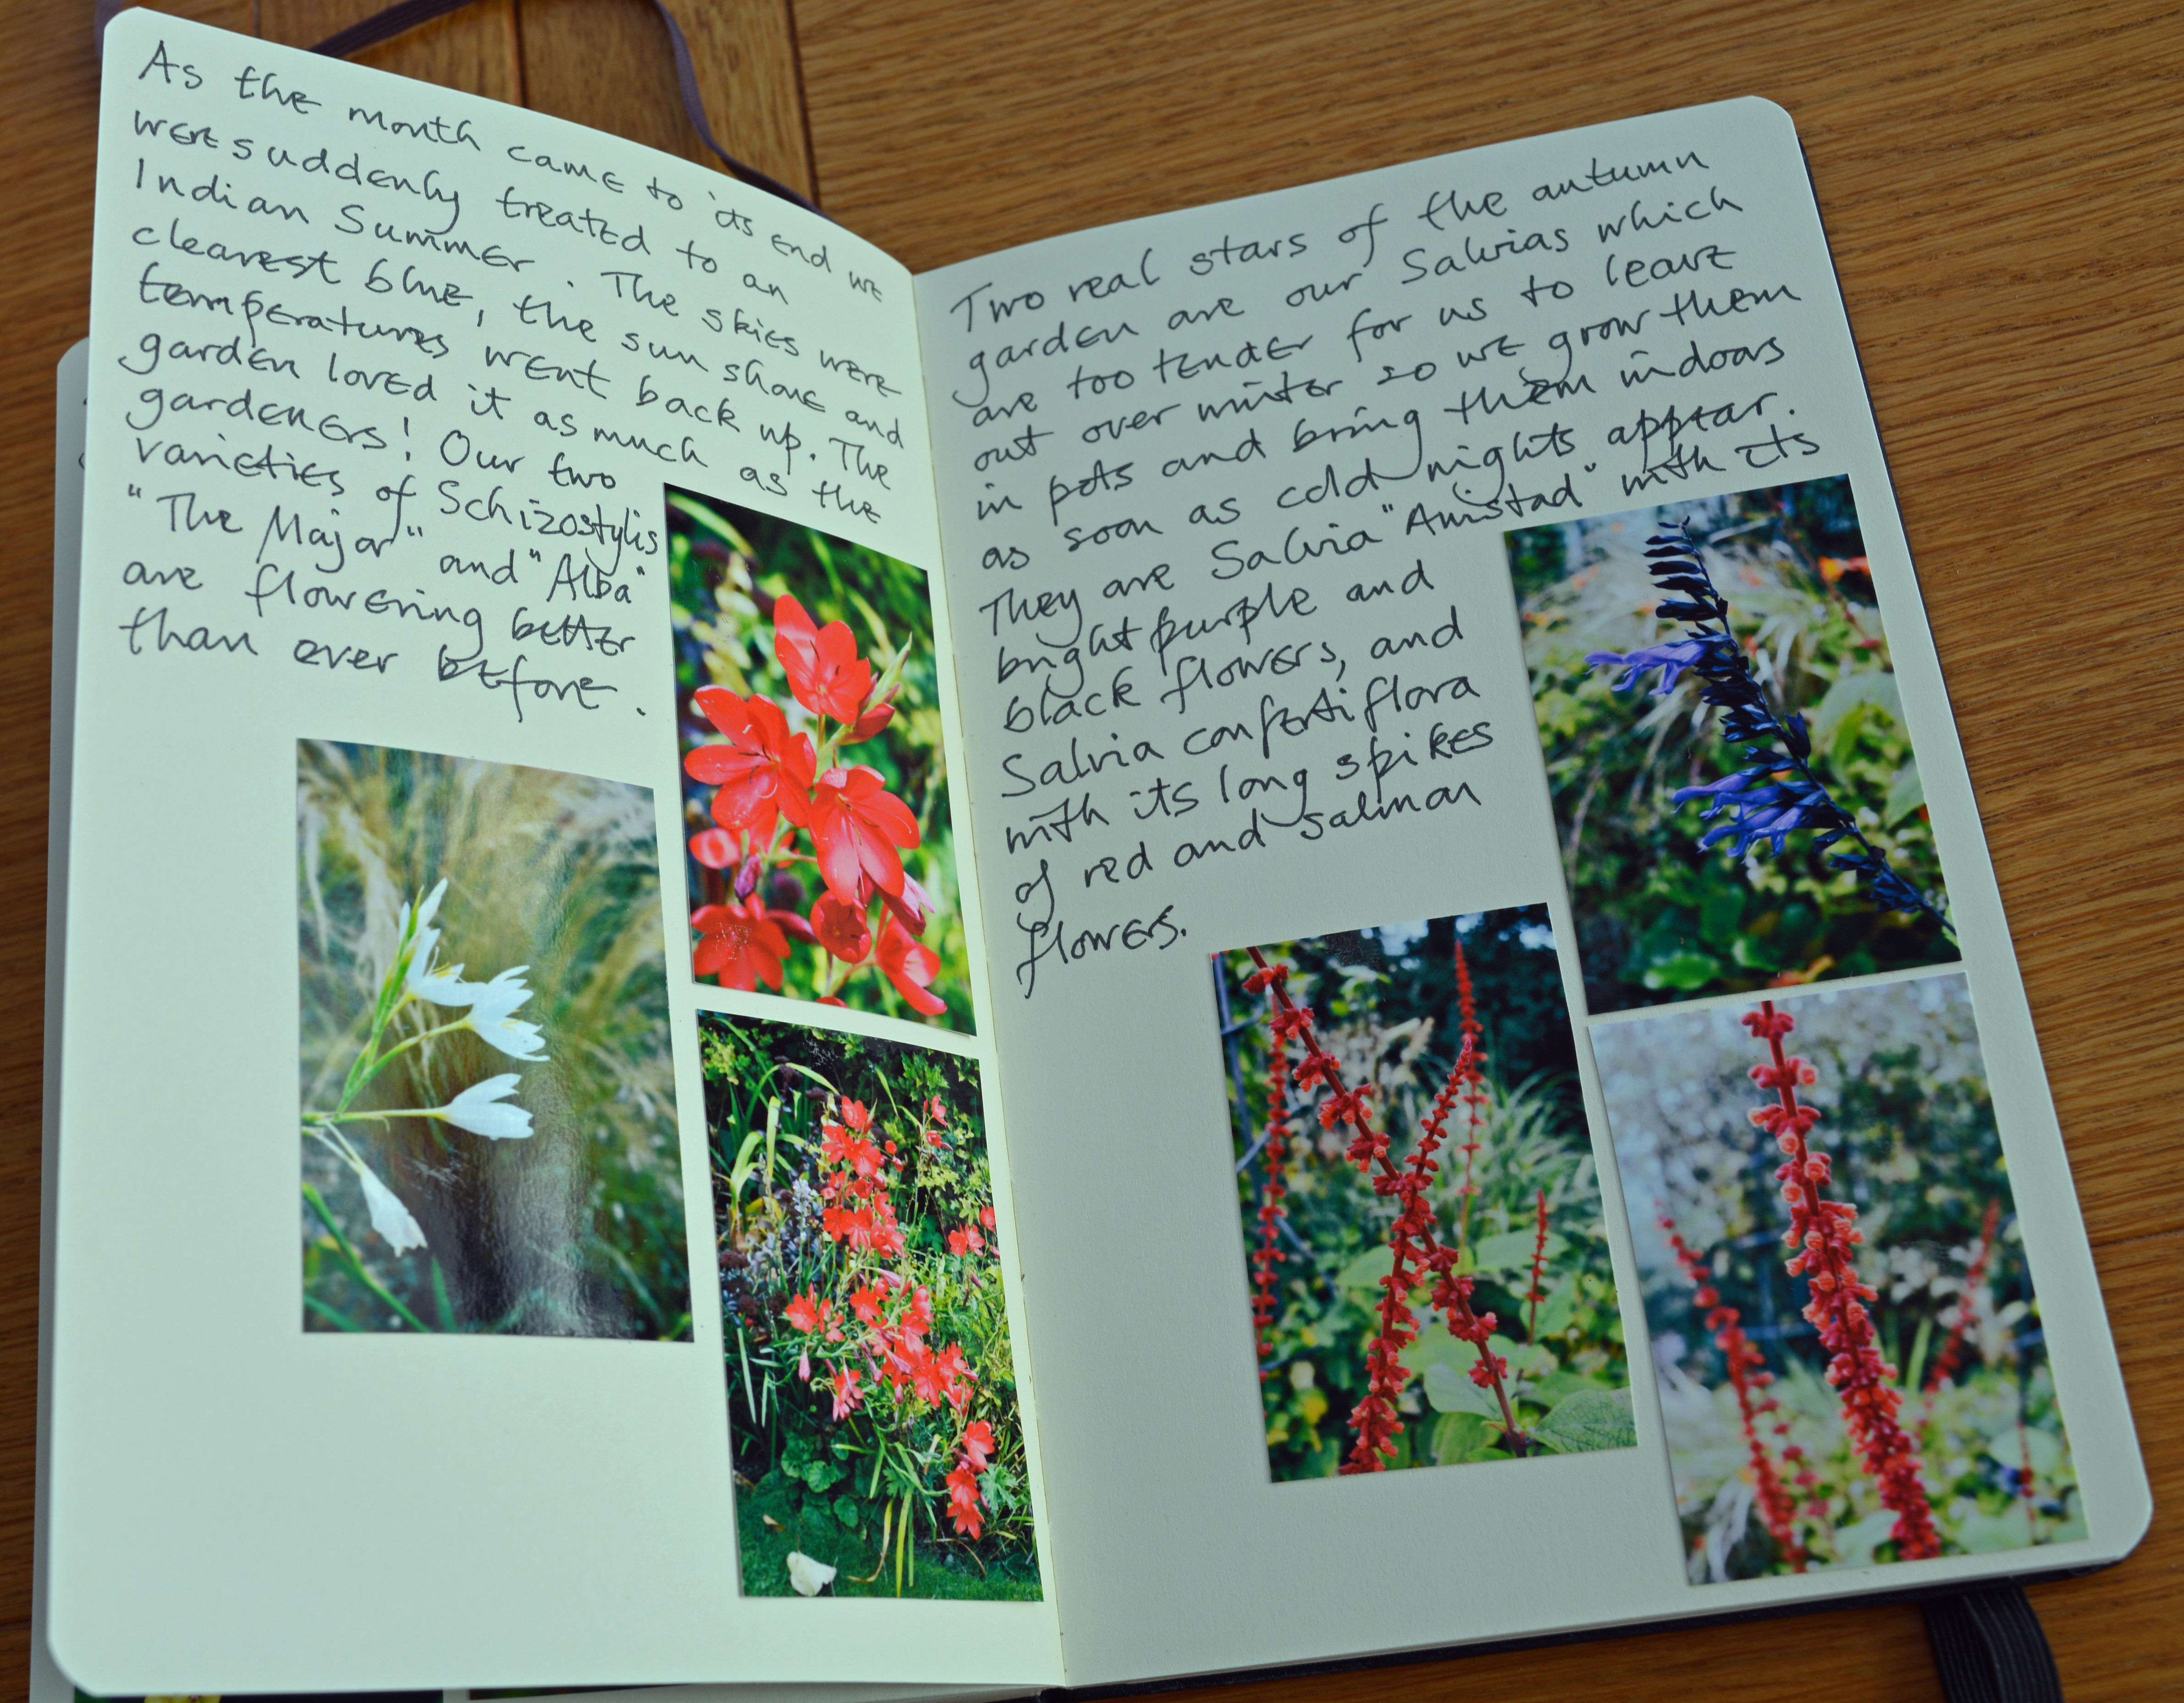 As the month came to its end we
were suddenly treated to an
Indian Summer. The skies were
clearest blue, the sun shone and
temperatures went back up. The
garden loved it as much as the
gardeners! Our two
varieties of Schizostylis
"The Major" and "Alba"
are flowering better
than ever before.
Two real stars of the autumn
garden are our Salvias which
are too tender for us to leave
out over winter so we grow them
in pots and bring them indoors
as soon as cold nights appear.
They are Salvia "Amistad" with its
bright purple and
black flowers, and
Salvia confertiflora
with its long spikes
of red and salmon
flowers.